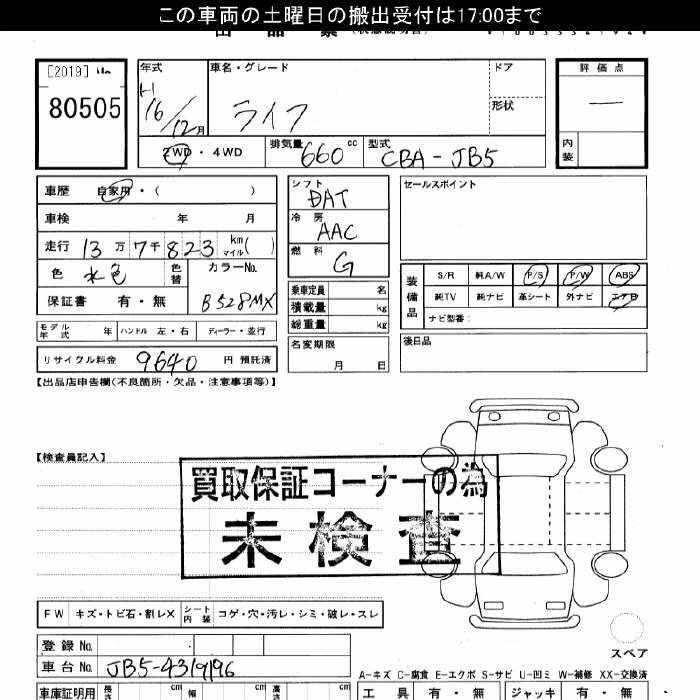 この車両の土曜日の搬出受付は17:00まで
[2019] No
80505
年式
H
16/12月
車名・グレード
ライフ
ドア
形状
評価点
—
内装
2WD・4WD
排気量 660 cc
型式 CBA-JB5
車歴 自家用・( )
車検 年 月
走行 13万7千823 km マイル( )
色 水色
色替
カラーNo. B528MX
保証書 有・無
シフト DAT
冷房 AAC
燃料 G
乗車定員 名
積載量 kg
総重量 kg
セールスポイント
装備品
S/R 純A/W P/S P/W ABS
純TV 純ナビ 革シート 外ナビ エアB
ナビ型番:
モデル年式 年 ハンドル 左・右 ディーラー・並行
名変期限 月 日
後日品
リサイクル料金 9640 円 預託済
【出品店申告欄(不良箇所・欠品・注意事項等)】
【検査員記入】
買取保証コーナーの為
未検査
FW キズ・トビ石・割レX シート内装 コゲ・穴・汚レ・シミ・破レ・スレ
スペア
登録No.
車台No. JB5-4319196
A-キズ C-腐食 E-エクボ S-サビ U-凹ミ W-補修 XX-交換済
車庫証明用 長さ cm 幅 cm 高さ cm
工具 有・無 ジャッキ 有・無